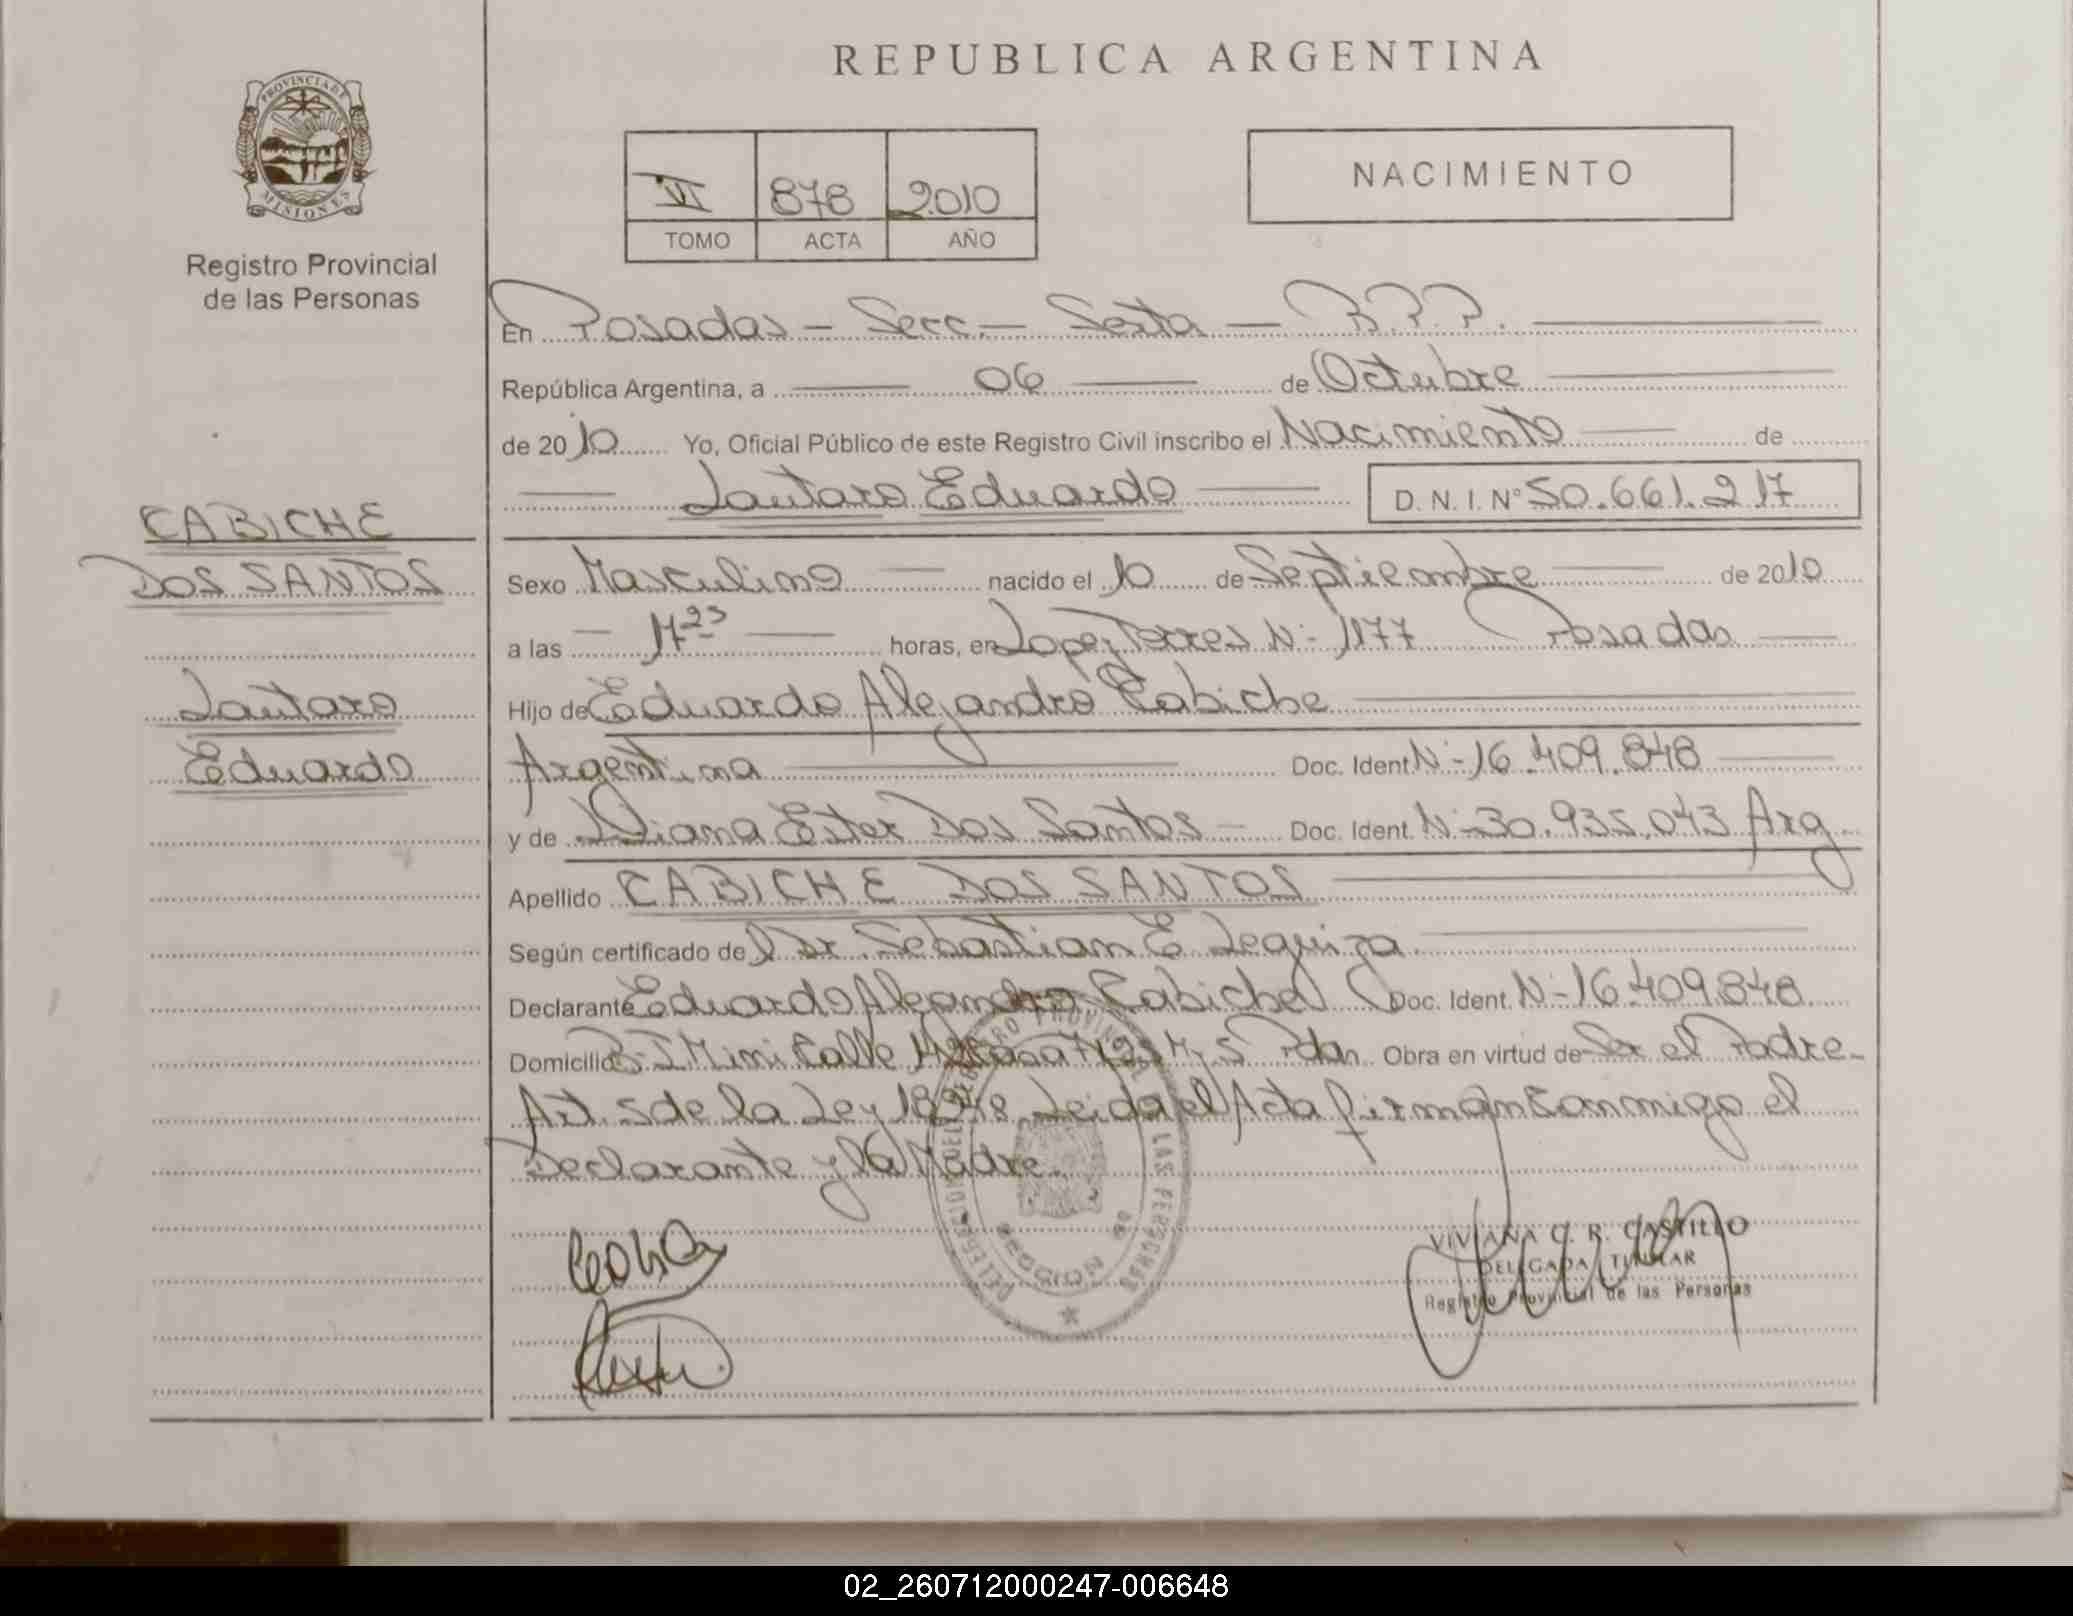 REPUBLICA ARGENTINA
PROVINCIA DE
MISIONES
Registro Provincial
de las Personas
VI 878 2010
TOMO ACTA AÑO
NACIMIENTO
En Posadas - Secc. - Sexta - R.P.P.
República Argentina, a 06 de Octubre
de 2010 Yo, Oficial Público de este Registro Civil inscribo el Nacimiento de
Lautaro Eduardo D.N.I. Nº 50.661.217
CABICHE
DOS SANTOS
Lautaro
Eduardo
Sexo Masculino nacido el 10 de Septiembre de 2010
a las 17 25 horas, en Lopez Torres N- 1177 Posadas
Hijo de Eduardo Alejandro Cabiche
Argentina Doc. Ident. N- 16.409.848
y de Diana Ester Dos Santos - Doc. Ident. N- 30.935.043 Arg
Apellido CABICHE DOS SANTOS
Según certificado del Dr. Sebastian E Leguiza
Declarante Eduardo Alejandro Cabiche Doc. Ident. N- 16.409.848
Domicilio Calle Obra en virtud de Ser el Padre-
Art. 5 de la Ley 18248 Leida el Acta firman Conmigo el
Declarante y la Madre.
REGISTRO PROVINCIAL DE LAS PERSONAS
DELEGACION
SECCION 6a
VIVIANA C. R. CASTILLO
DELEGADA TITULAR
Registro Provincial de las Personas
02_260712000247-006648